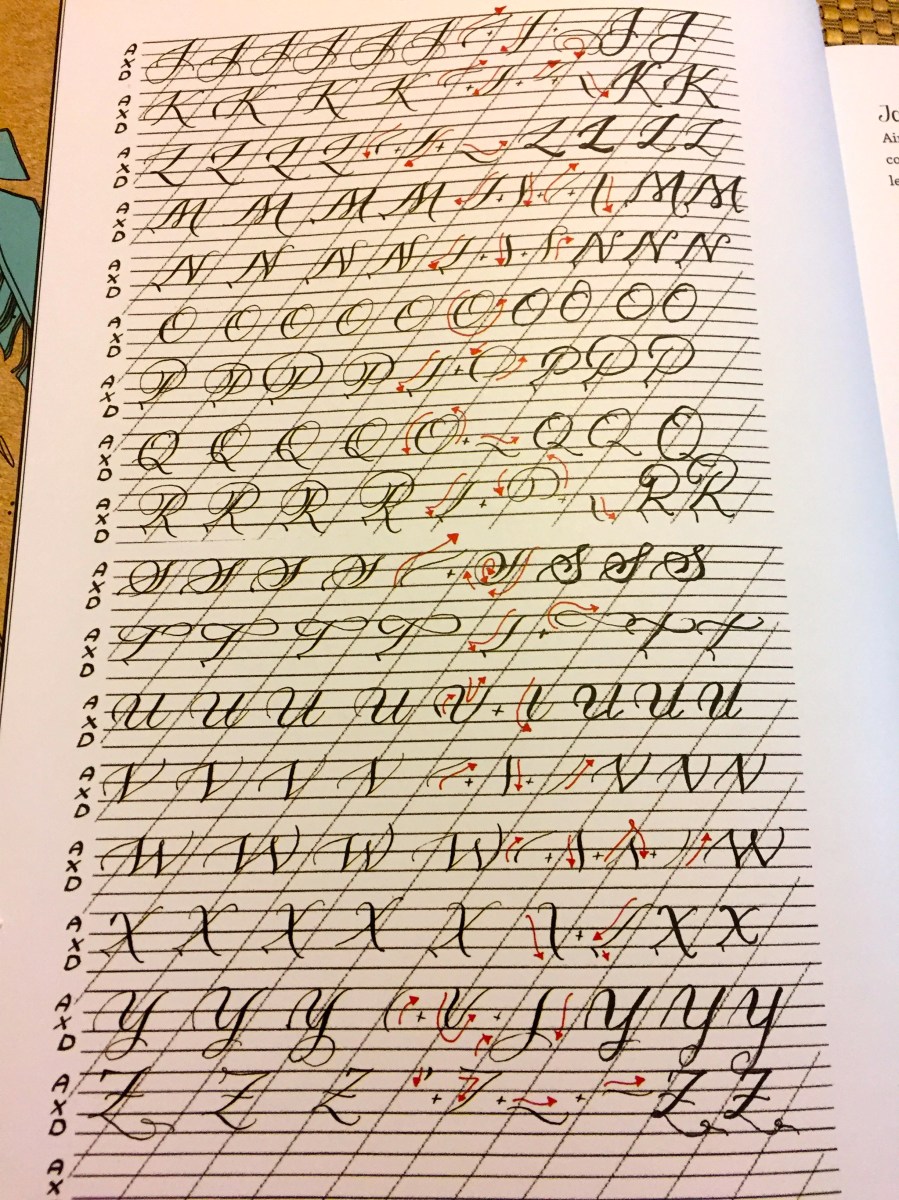 A X D J J J J J J + J J
A X D K K K K + + K K
A X D L L L L + + L L L L
A X D M M M M + + M M
A X D N N N N + + N N N
A X D O O O O O O O O O O
A X D P P P P + P P P
A X D Q Q Q Q O + Q Q Q
A X D R R R R + R R
A X D S S S S + S S S S
A X D T T T T + T T
A X D U U U U + U U U
A X D V V V V + V V V
A X D W W W W + + W
A X D X X X X X + X X
A X D Y Y Y + + Y Y Y
A X D Z Z Z + + + Z Z
A X